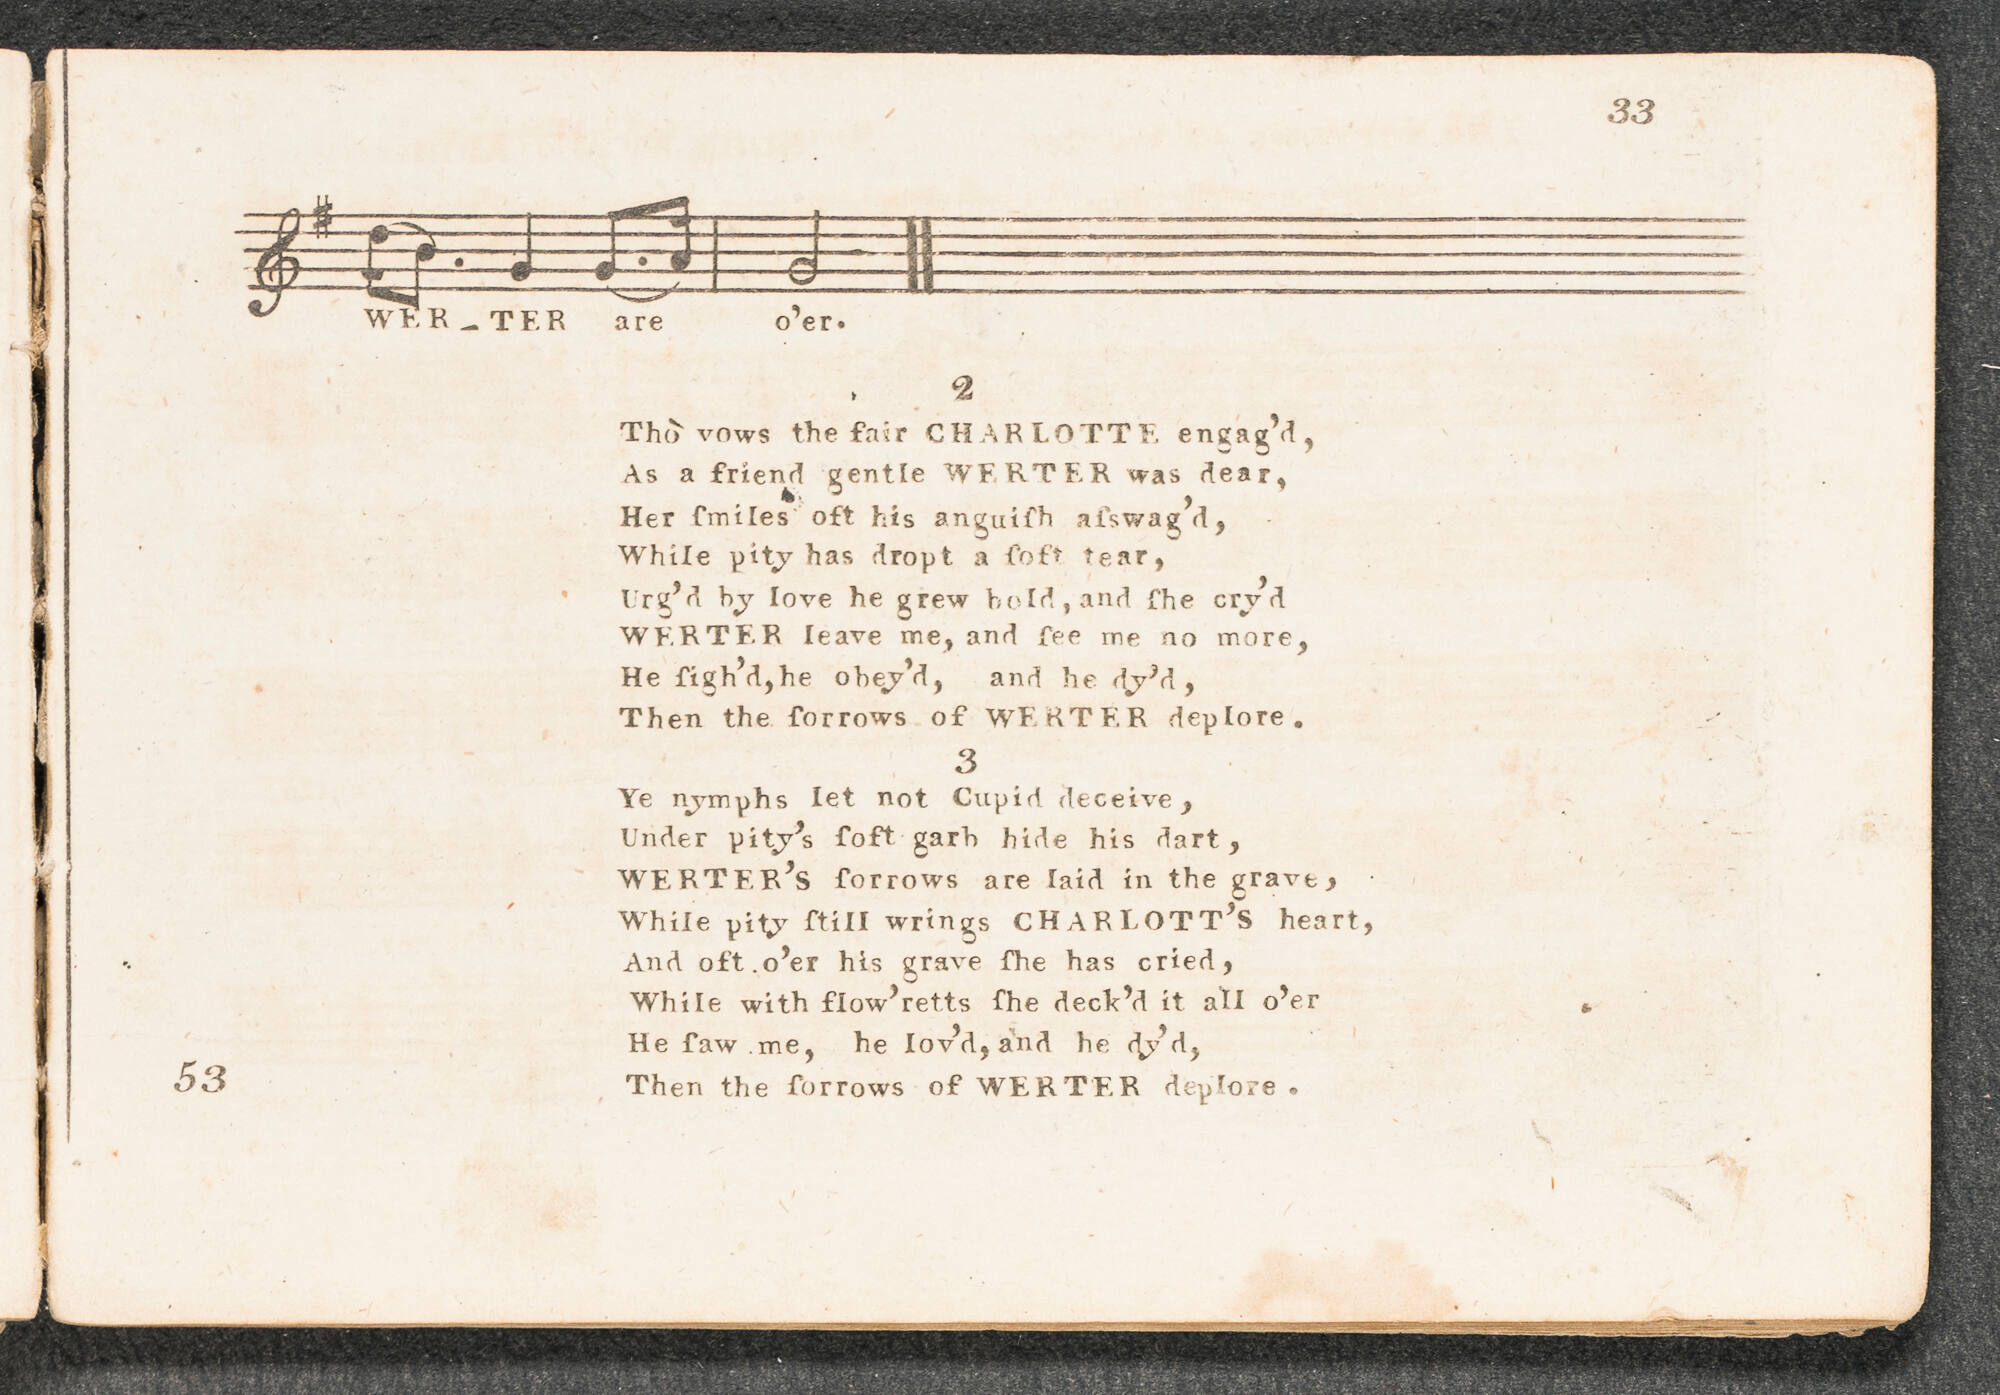 33
WER-TER are o'er.
2
Thò vows the fair CHARLOTTE engag'd,
As a friend gentle WERTER was dear,
Her ſmiles oft his anguiſh aſswag'd,
While pity has dropt a ſoft tear,
Urg'd by love he grew bold, and ſhe cry'd
WERTER leave me, and ſee me no more,
He ſigh'd, he obey'd, and he dy'd,
Then the ſorrows of WERTER deplore.
3
Ye nymphs let not Cupid deceive,
Under pity's ſoft garb hide his dart,
WERTER'S ſorrows are laid in the grave,
While pity ſtill wrings CHARLOTT'S heart,
And oft o'er his grave ſhe has cried,
While with flow'retts ſhe deck'd it all o'er
He ſaw me, he lov'd, and he dy'd,
Then the ſorrows of WERTER deplore.
53